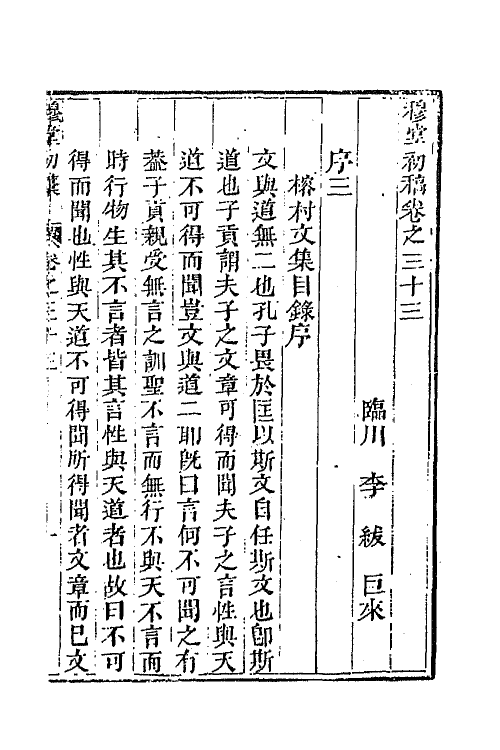 穆堂初稿卷之三十三
臨川 李紱 巨來
序三
榕村文集目錄序
文與道無二也孔子畏於匡以斯文自任斯文也卽斯
道也子貢謂夫子之文章可得而聞夫子之言性與天
道不可得而聞豈文與道二耶旣曰言何不可聞之有
葢子貢親受無言之訓聖不言而無行不與天不言而
時行物生其不言者皆其言性與天道者也故曰不可
得而聞也性與天道不可得聞所得聞者文章而已文
穆堂初稾 卷之三十三 一